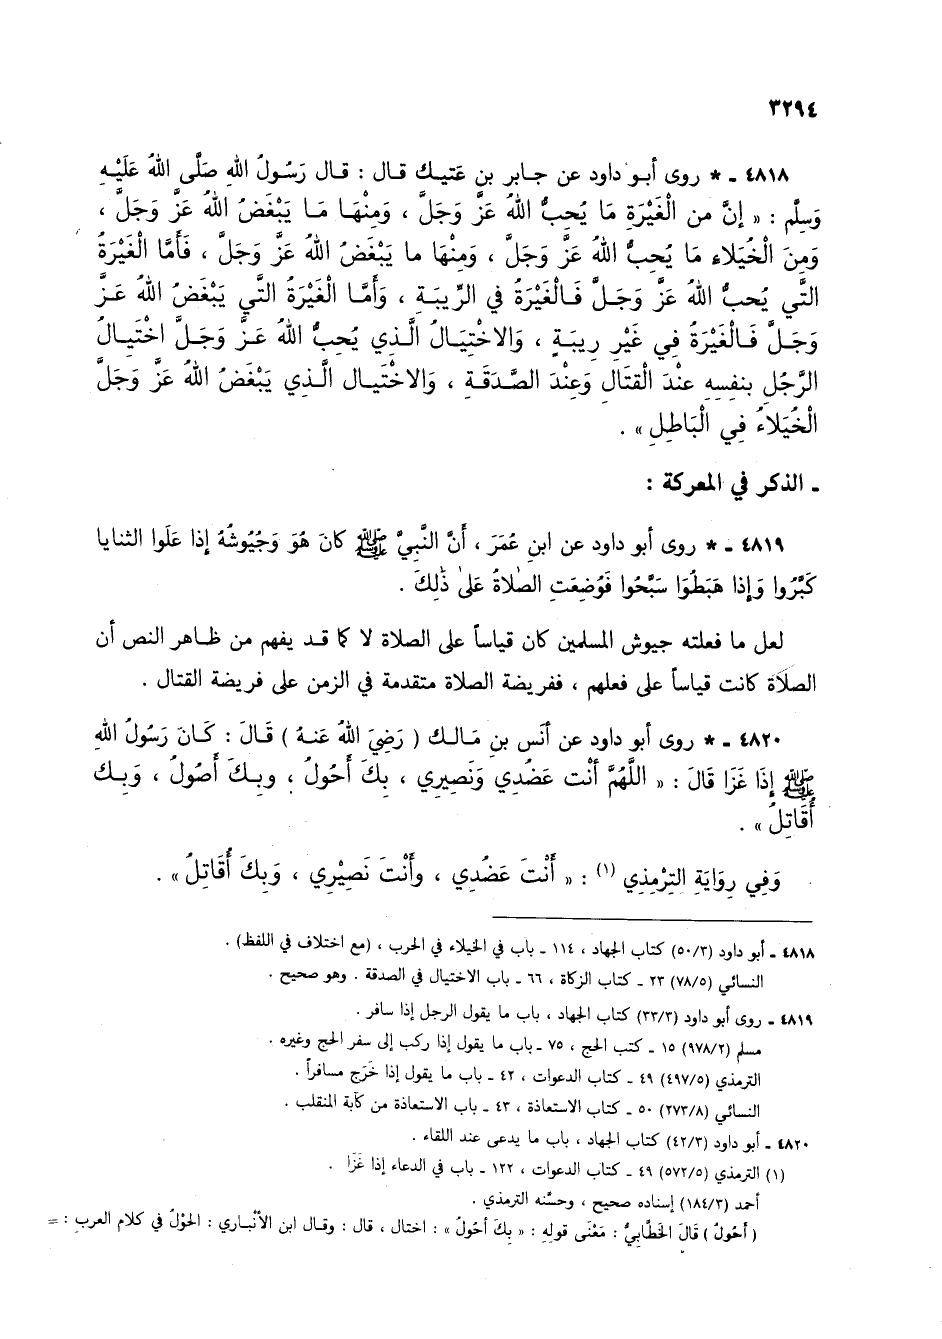 ٣٢٩٤
٤٨١٨ ـ * روى أبو داود عن جابر بن عَتيك قال : قال رَسُولُ اللهِ صَلَّى اللهُ عَلَيْهِ
وَسلَّم : « إنَّ من الْغَيْرَةِ مَا يُحِبُّ اللهُ عَزَّ وَجَلَّ ، وَمِنْهَا مَا يَبْغَضُ اللهُ عَزَّ وَجَلَّ ،
وَمِنَ الْخُيَلاء مَا يُحِبُّ اللهُ عَزَّ وَجَلَّ ، وَمِنْهَا ما يَبْغَضُ اللهُ عَزَّ وَجَلَّ ، فَأَمَّا الْغَيْرَةُ
التَّي يُحِبُّ اللهُ عَزَّ وَجَلَّ فَالْغَيْرَةُ في الرِّيبَةِ ، وَأَمَّا الْغَيْرَةُ التَّي يَبْغَضُ اللهُ عَزَّ
وَجَلَّ فَالْغَيْرَةُ فِي غَيْرِ رِيبَةٍ ، وَالاخْتِيَالُ الَّذي يُحِبُّ اللهُ عَزَّ وَجَلَّ اخْتِيَالُ
الرَّجُلِ بنفسِهِ عنْدَ الْقتَالِ وَعِنْدَ الصَّدَقَةِ ، وَالاخْتِيَال الَّذي يَبْغَضُ اللهُ عَزَّ وَجَلَّ
الْخُيَلاءُ فِي الْبَاطِلِ » .
ـ الذكر في المعركة :
٤٨١٩ ـ * روى أبو داود عن ابنِ عُمَرَ ، أَنَّ النَّبِيَّ ﷺ كانَ هُوَ وَجُيُوشُهُ إذا عَلَوا الثنايا
كَبَّرُوا وَإذا هَبَطُوَا سَبَّحُوا فَوُضِعَتِ الصلاةُ عَلىٰ ذٰلِكَ .
لعل ما فعلته جيوش المسلمين كان قياساً على الصلاة لا كما قد يفهم من ظاهر النص أن
الصلاة كانت قياساً على فعلهم ، ففريضة الصلاة متقدمة في الزمن على فريضة القتال .
٤٨٢٠ ـ * روى أبو داود عن أنَس بنِ مَالك ( رَضِيَ اللهُ عَنهُ ) قَالَ : كَانَ رَسُولُ اللهِ
ﷺ إذَا غَزَا قَالَ : « اللَّهُمَّ أَنْت عَضُدي وَنَصِيرِي ، بِكَ أَحُولُ ، وبِكَ أصُولُ ، وَبِكَ
أُقَاتِلُ » .
وَفي رِوَايَةِ التِرْمِذي (١) : « أَنْتَ عَضُدِي ، وأَنْتَ نَصِيْرِي ، وَبِكَ أُقَاتِلُ » .
٤٨١٨ ـ أبو داود (٥٠/٣) كتاب الجهاد ، ١١٤ ـ باب في الخيلاء في الحرب ، (مع اختلاف في اللفظ) .
النسائي (٧٨/٥) ٢٣ ـ كتاب الزكاة ، ٦٦ ـ باب الاختيال في الصدقة . وهو صحيح .
٤٨١٩ ـ روى أبو داود (٣٣/٣) كتاب الجهاد ، باب ما يقول الرجل إذا سافر .
مسلم (٩٧٨/٢) ١٥ ـ كتب الحج ، ٧٥ ـ باب ما يقول إذا ركب إلى سفر الحج وغيره .
الترمذي (٤٩٧/٥) ٤٩ ـ كتاب الدعوات ، ٤٢ ـ باب ما يقول إذا خَرَج مسافراً .
النسائي (٢٧٣/٨) ٥٠ ـ كتاب الاستعاذة ، ٤٣ ـ باب الاستعاذة من كآبة المنقلب .
٤٨٢٠ ـ أبو داود (٤٢/٣) كتاب الجهاد ، باب ما يدعى عند اللقاء .
(١) الترمذي (٥٧٢/٥) ٤٩ ـ كتاب الدعوات ، ١٢٢ ـ باب في الدعاء إذا غَزَا .
أحمد (١٨٤/٣) إسناده صحيح ، وحسَّنه الترمذي .
( أحُولُ ) قَالَ الخَطَّابيُّ : مَعْنَى قولِهِ : « بِكَ أحُولُ » : احتال ، قال : وقال ابن الأنْباري : الحَوْلُ في كلام العرب : =